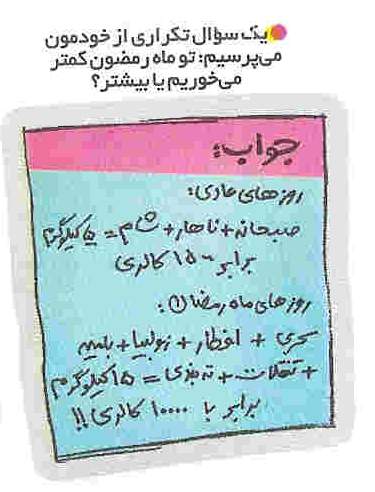 یک سؤال تکراری از خودمون
می‌پرسیم: تو ماه رمضون کمتر
می‌خوریم یا بیشتر؟
جواب:
روزهای عادی:
صبحانه + ناهار + شام = ۵ کیلوگرم
برابر ۱۵۰۰ کالری
روزهای ماه رمضان:
سحری + افطار + زولبیا + بامیه
+ تنقلات + ته‌بندی = ۱۵ کیلوگرم
برابر با ۱۰۰۰۰ کالری!!